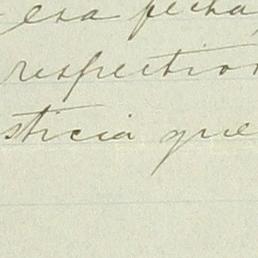 esa fecha,
respectiv
sticia que